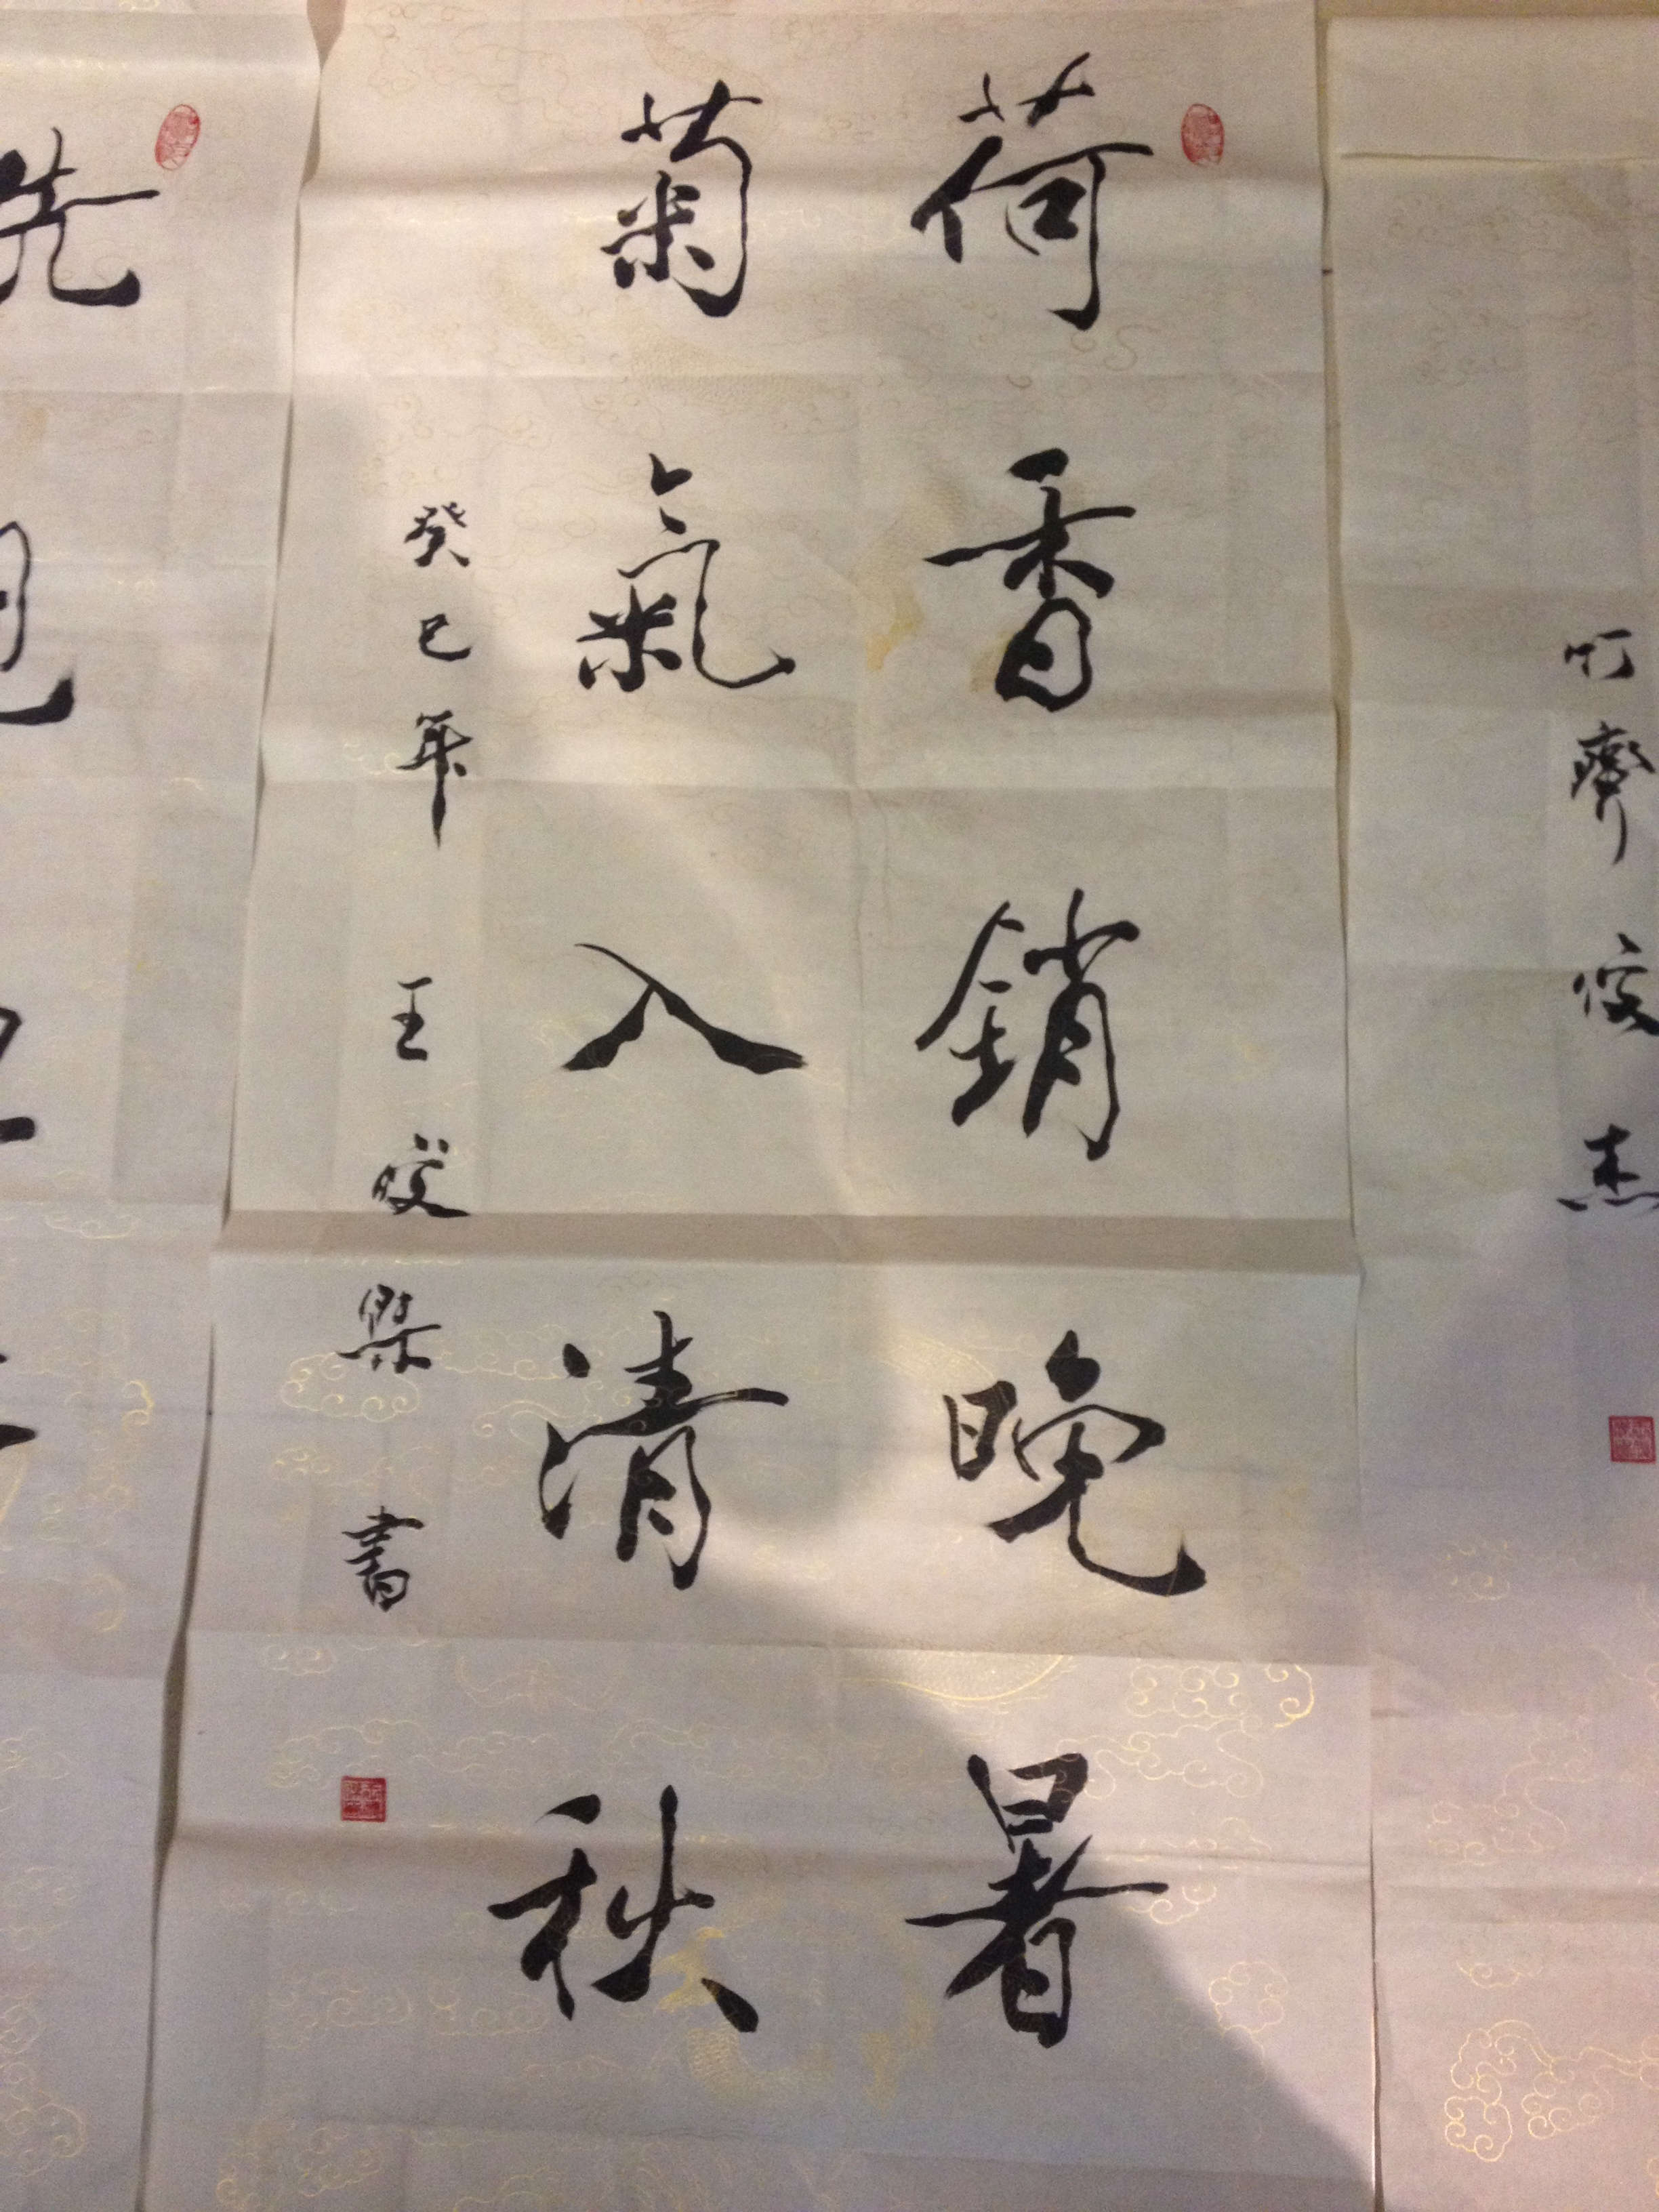 荷香銷晚暑
菊氣入清秋
癸巳年 王 傑書
俊杰
先